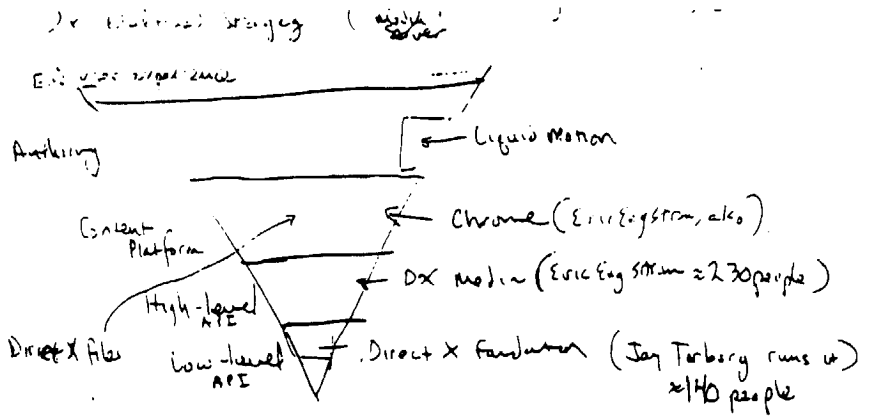 (
server
Authoring
Liquid Motion
Content
Platform
Chrome (Eric Engstrom, also)
DX Media (Eric Engstrom ≈ 230 people)
High-level
API
Direct X files
Low-level
API
Direct X Foundation (Jay Torborg runs it)
≈140 people